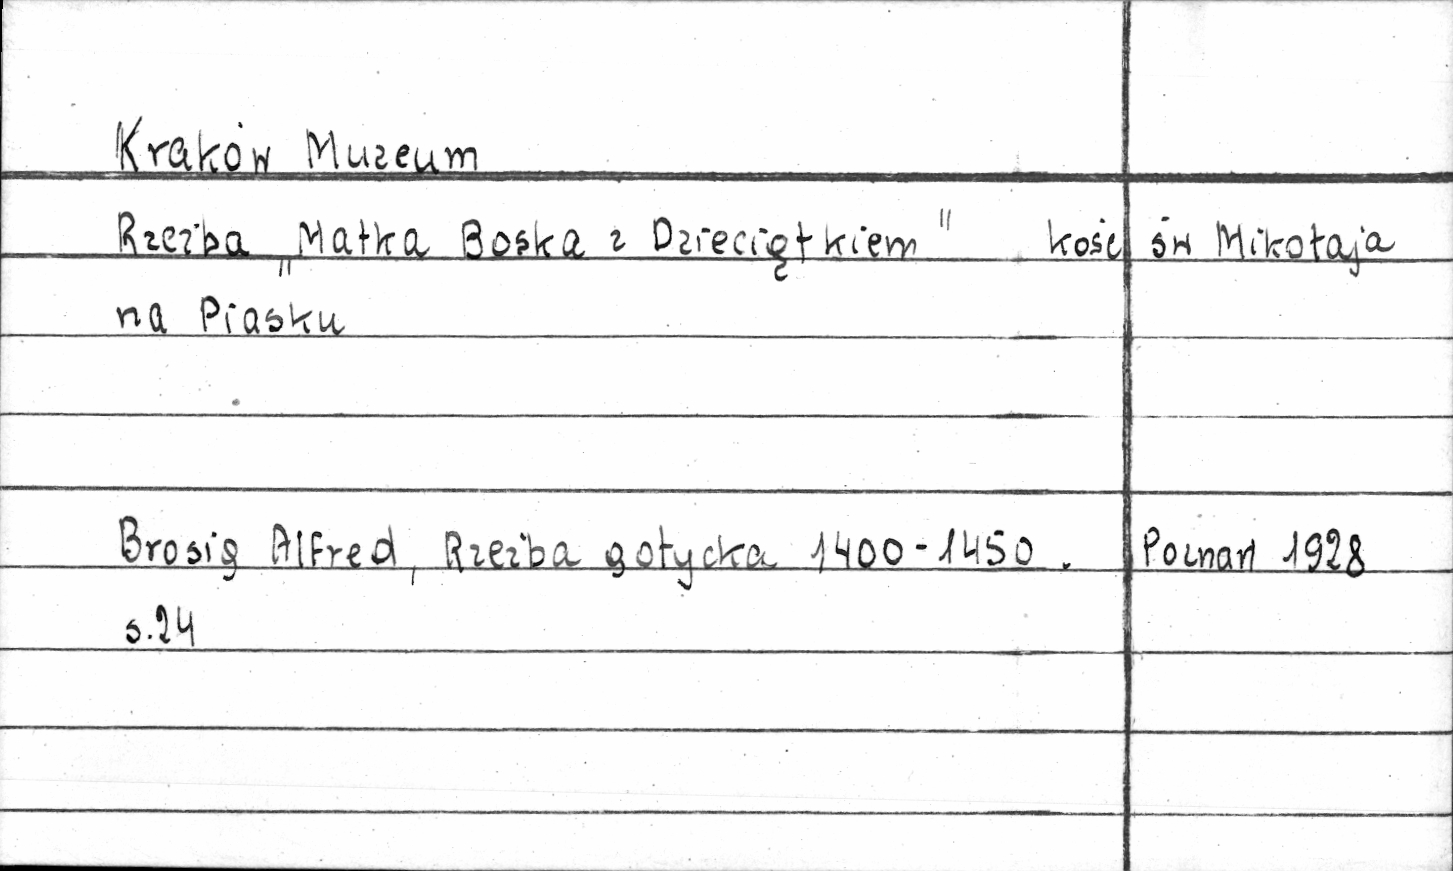 Kraków Muzeum
Rzeźba „Matka Boska z Dzieciątkiem" kośc św Mikołaja
na Piasku
Brosig Alfred, Rzeźba gotycka 1400-1450. Poznań 1928
s.24